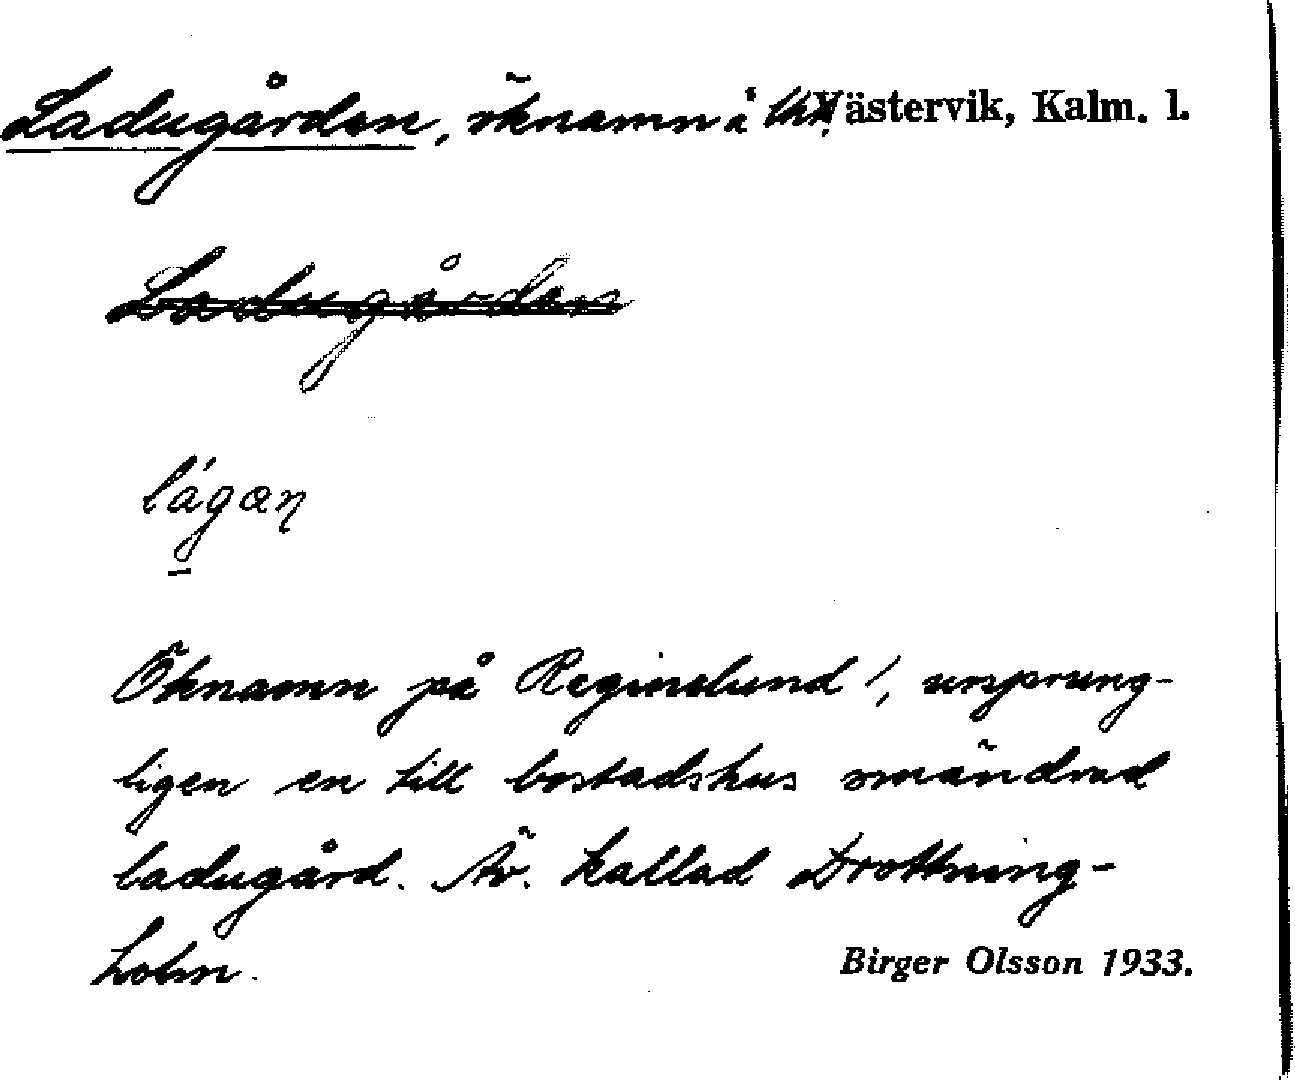 Ladugården, öknamn i kv. Västervik, Kalm. l.
Ladugården
lágan
Öknamn på Reginelund /, ursprung-
ligen en till bostadshus omändrad
ladugård. Äv. kallad Drottning-
holm.
Birger Olsson 1933.